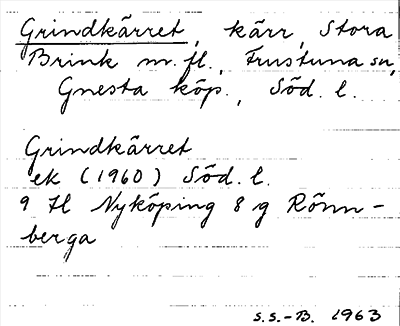 Grindkärret, kärr, Stora
Brink m. fl., Frustuna sn,
Gnesta köp., Söd. l.
Grindkärret
ek (1960) Söd. l.
9 H Nyköping 8 g Rönn-
berga
S.S.-B. 1963